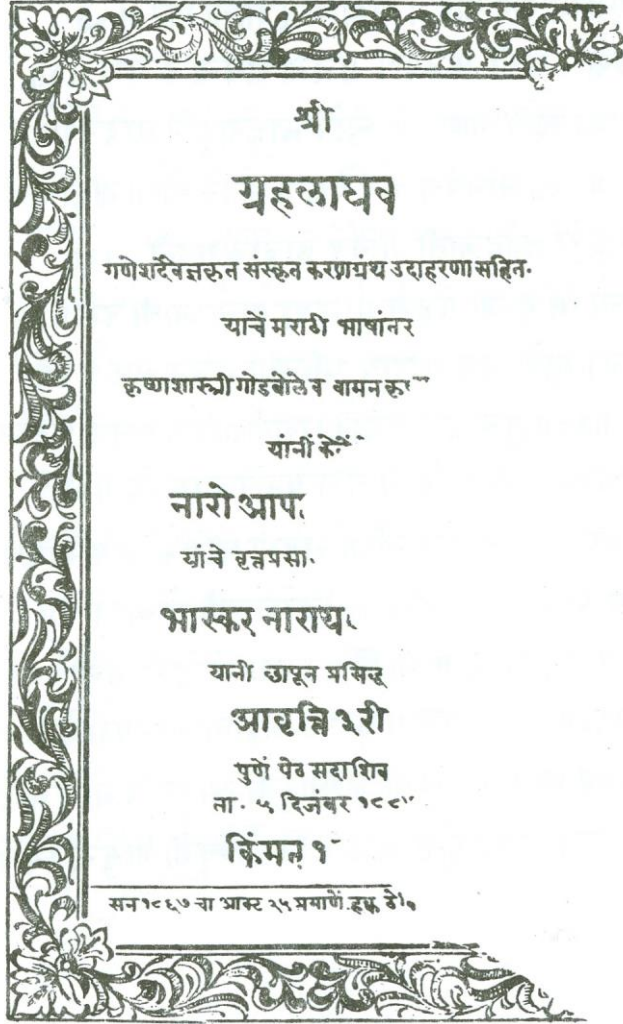 श्री
ग्रहलाघव
गणेशदैवज्ञकृत संस्कृत करणग्रंथ उदाहरणा सहित.
याचें मराठी भाषांतर
कृष्णाशास्त्री गोडबोले व वामन
यांनीं
नारो
यांचे
भास्कर
यानी छापून प्रसिद्ध
आवृत्ति ३री
पुणें पेठ सदाशिव
ता. ५ दिजंबर
किंमत १
सन १८६७ चा आक्ट २५ प्रमाणें